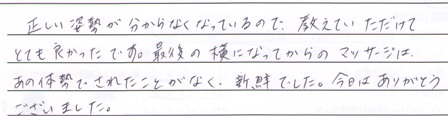 正しい姿勢が分からなくなっているので、教えていただけて
とても良かったです。最後の横になってからのマッサージは、
あの体勢でされたことがなく、新鮮でした。今日はありがとう
ございました。